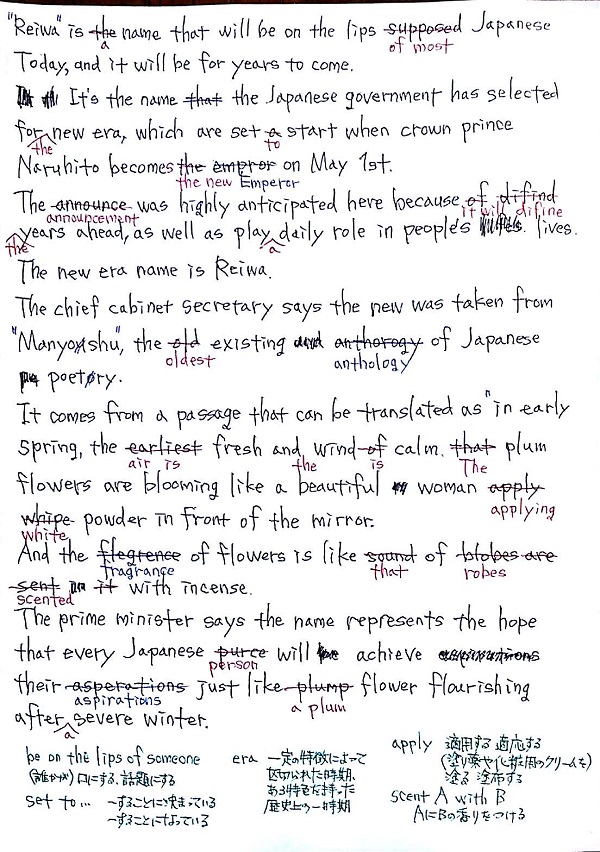 "Reiwa" is the name that will be on the lips supposed Japanese
a
of most
Today, and it will be for years to come.
It's the name that the Japanese government has selected
for new era, which are set a start when crown prince
the
to
Naruhito becomes the empror on May 1st.
the new Emperor
The announce was highly anticipated here because of difind
announcement
it will difine
years ahead, as well as play daily role in people's lives.
the
a
The new era name is Reiwa.
The chief cabinet secretary says the new was taken from
"Manyoshu", the old existing and anthorogy of Japanese
oldest
anthology
poetry.
It comes from a passage that can be translated as "in early
spring, the earliest fresh and wind of calm. that plum
air is
the
is
The
flowers are blooming like a beautiful woman apply
applying
whipe powder in front of the mirror.
white
And the flegrence of flowers is like sound of blobes are
fragrance
that
robes
sent it with incense.
scented
The prime minister says the name represents the hope
that every Japanese purce will achieve
person
their asperations just like plump flower flourishing
aspirations
a plum
after severe winter.
a
be on the lips of someone
(誰かが)口にする、話題にする
set to... ~することに決まっている
~することになっている
era 一定の特徴によって
区切られた時期、
ある特色を持った
歴史上の一時期
apply 適用する 適応する
(塗り薬や化粧用のクリームを)
塗る 塗布する
scent A with B
AにBの香りをつける